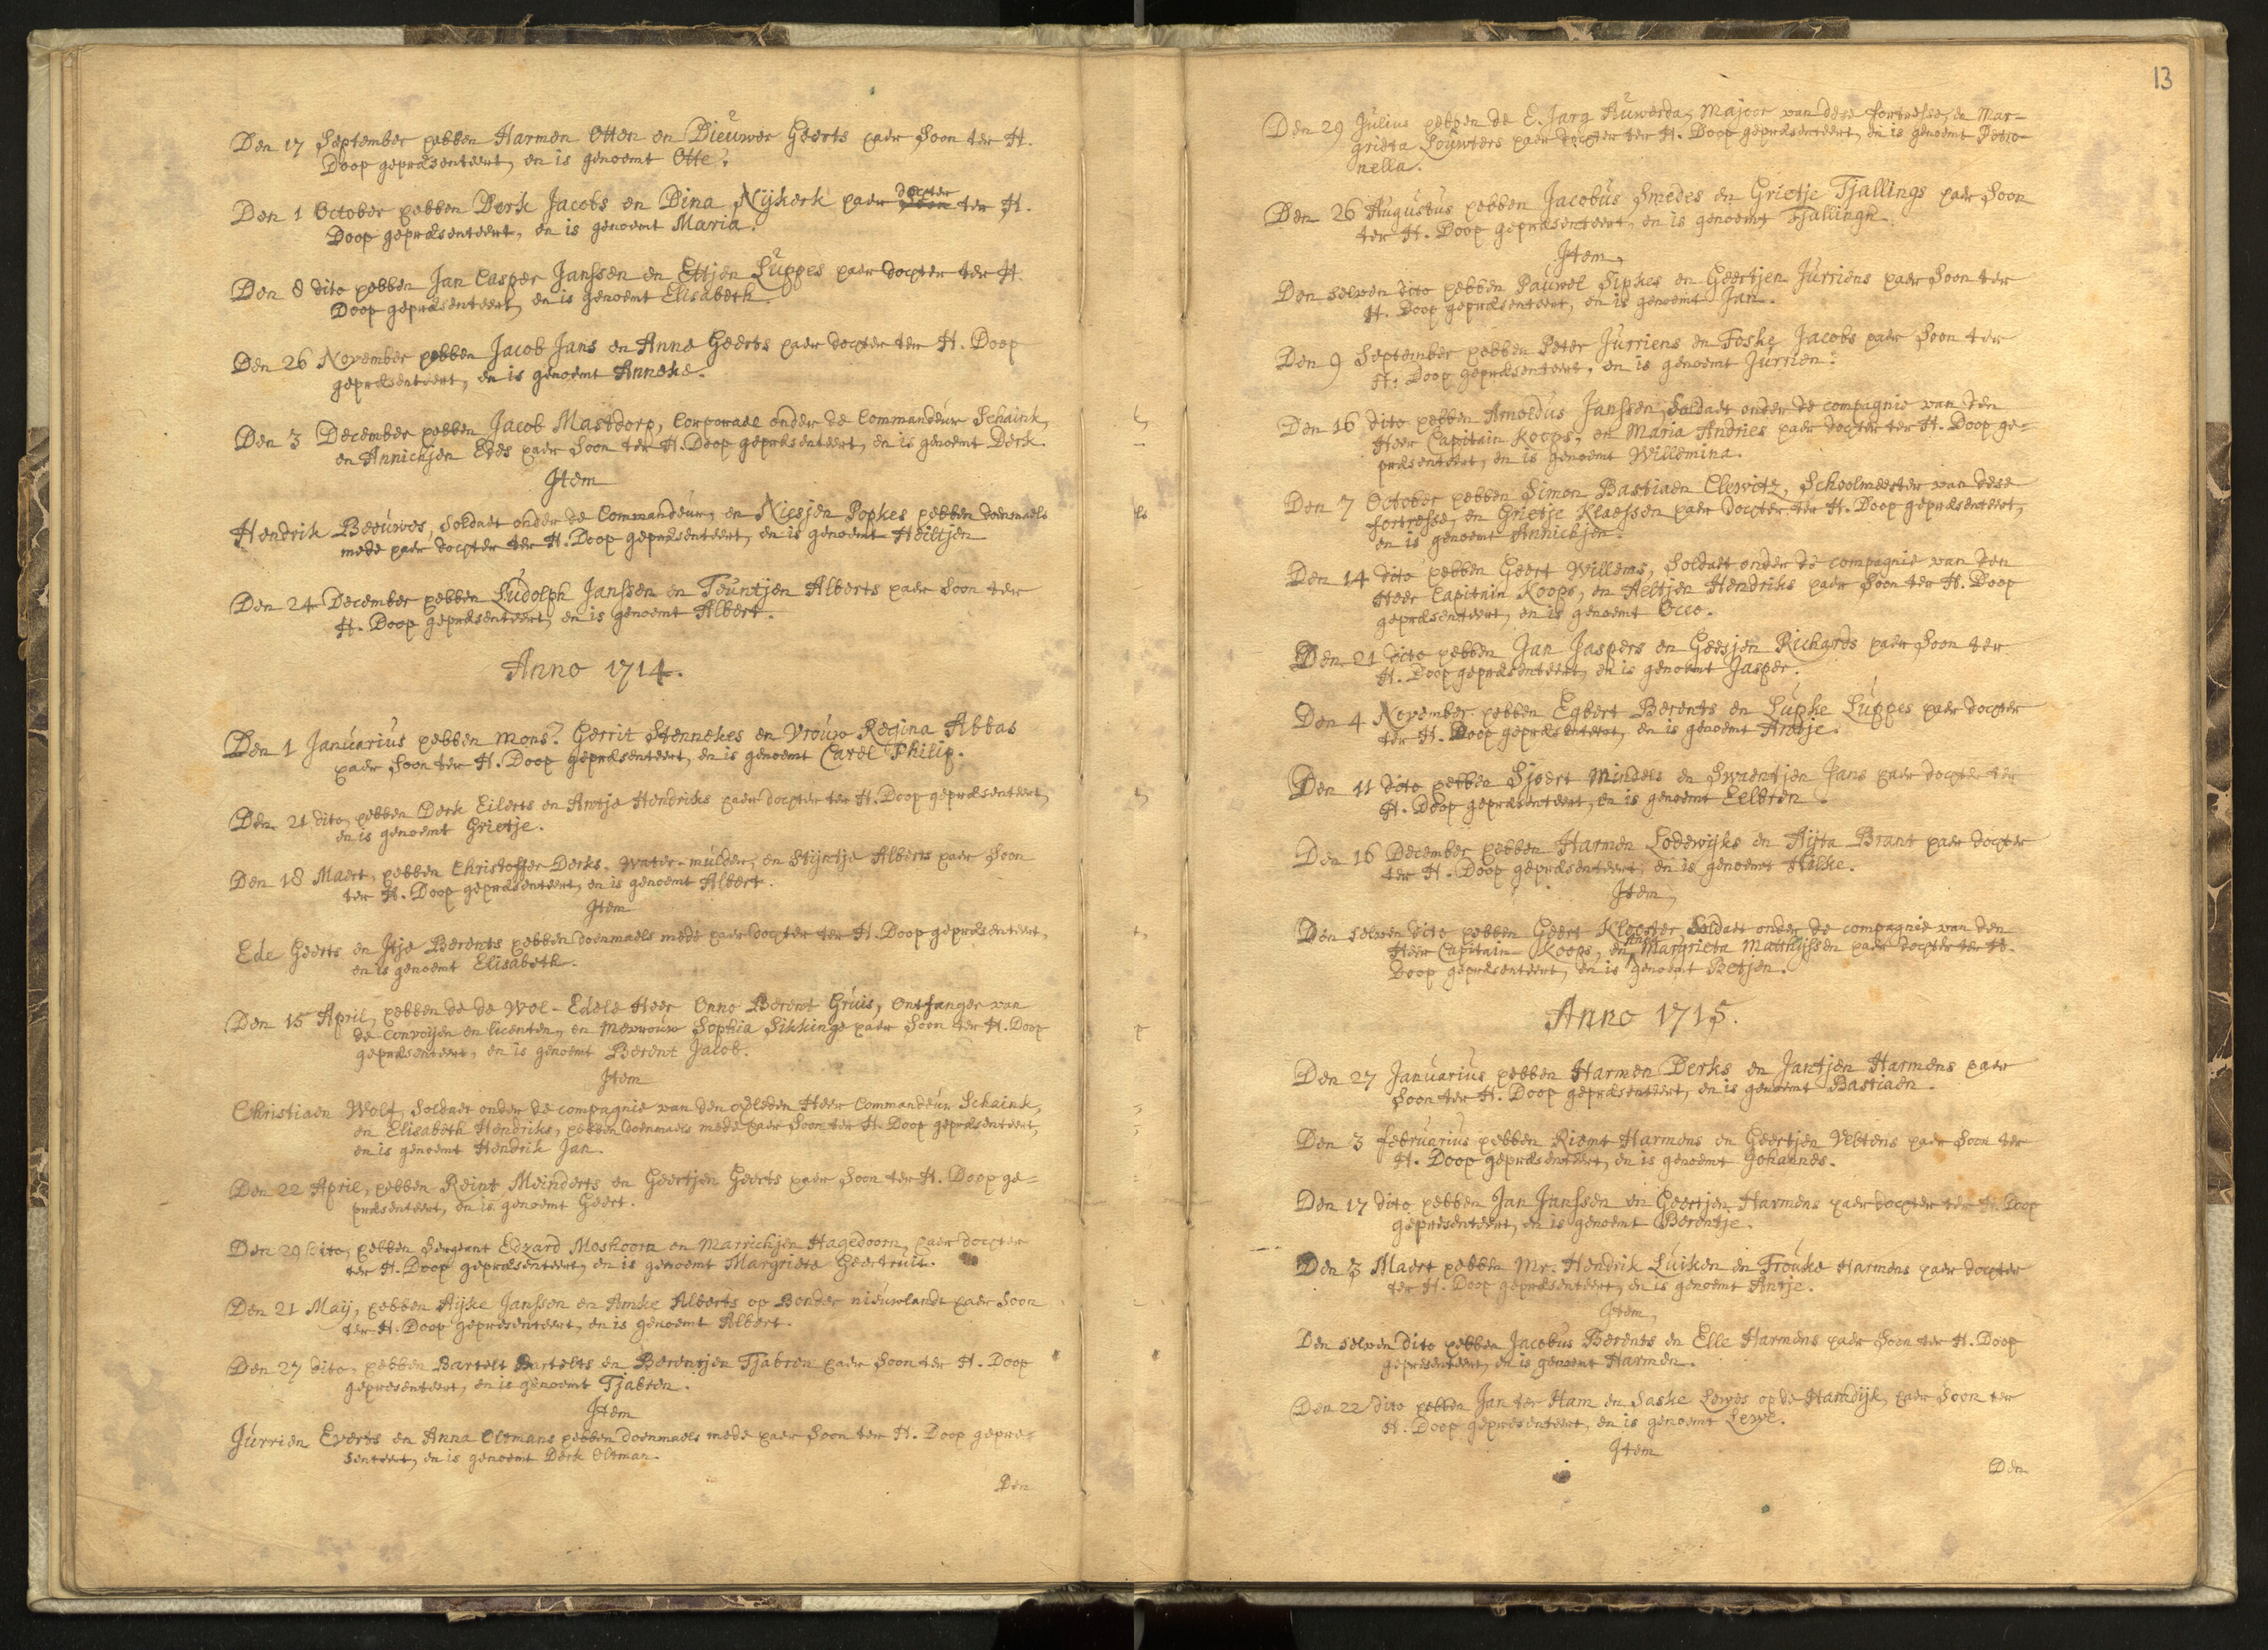 Den 17 September hebben Harmen Otten en Dieuwer Geerts haer Soon ter H.
Doop gepræsenteert, en is genoemt Otte.
Den 1 October hebben Derk Jacobs en Dina Nijkerk haer dochter ter H.
Doop gepræsenteert, en is genoemt Maria.
Den 8 dito hebben Jan Casper Janssen en Ettjen Luppes haer dochter ter H.
Doop gepræsenteert, en is genoemt Elisabeth.
Den 26 November hebben Jacob Jans en Anne Geerts haer dochter ter H. Doop
gepræsenteert, en is genoemt Anneke.
Den 3 December hebben Jacob Mastdorp, Corporael onder de Commandeur Schaink,
en Annichjen Edes haer Soon ter H. Doop gepræsenteert, en is genoemt Derk.
Item
Hendrik Beeuwes, Soldaet onder de Commandeur, en Niesjen Popkes hebben doenmaels
mede haer dochter ter H. Doop gepræsenteert, en is genoemt Heiltjen
Den 24 December hebben Ludolph Janssen en Teuntjen Alberts haer Soon ter
H. Doop gepræsenteert, en is genoemt Albert.
Anno 1714.
Den 1 Januarius hebben Mons. Gerrit Stennekes en Vrouw Regina Abbas
haer Soon ter H. Doop gepræsenteert, en is genoemt Carel Philip.
Den 21 dito, hebben Derk Eilerts en Antje Hendriks haer dochter ter H. Doop gepræsenteert,
en is genoemt Grietje.
Den 18 Maert, hebben Christoffer Derks, Water-mulder, en Stijntje Alberts haer Soon
ter H. Doop gepræsenteert, en is genoemt Albert.
Item
Ede Geerts en Itje Berents hebben doenmaels mede haer dochter ter H. Doop gepræsenteert,
en is genoemt Elisabeth.
Den 15 April, hebben de de Wol-Edele Heer Onno Berent Gruis, Ontfanger van
de Convoijen en licenten, en Mevrouw Sophia Sikkinge haer Soon ter H. Doop
gepræsenteert, en is genoemt Berent Jacob.
Item
Christiaen Wolf, Soldaet onder de compagnie van den Heer Commandeur Schaink,
en Elisabeth Hendriks, hebben doenmaels mede haer Soon ter H. Doop gepræsenteert,
en is genoemt Hendrik Jan.
Den 22 April, hebben Reint Meinderts en Geertjen Geerts haer Soon ter H. Doop ge=
præsenteert, en is genoemt Geert.
Den 29 dito, hebben Sergeant Edzard Moshoorn en Marrichjen Hagedoorn, haer dochter
ter H. Doop gepræsenteert, en is genoemt Margrieta Geertruit.
Den 21 Maij, hebben Aijke Janssen en Amke Alberts op Bonder nieuwlandt haer Soon
ter H. Doop gepresenteert, en is genoemt Albert.
Den 27 dito, hebben Bartelt Bartelts en Berentjen Tjabren haer Soon ter H. Doop
gepresenteert, en is genoemt Tjabren.
Item
Jurrien Everts en Anna Oltmans hebben doenmaels mede haer Soon ter H. Doop gepre=
senteert, en is genoemt Derk Oltman.
Den
13
Den 29 Julius hebben de E. Jarg Auwerda, Majoor van dese fortresse, en Mar=
grieta Louwters haer dochter ter H. Doop gepræsenteert, en is genoemt Petro=
nella.
Den 26 Augustus hebben Jacobus Smedes en Grietje Tjallings haer Soon
ter H. Doop gepræsenteert, en is genoemt Tjallingh.
Item,
Den selven dito hebben Pauwel Sipkes en Geertjen Jurriens haer Soon ter
H. Doop gepræsenteert, en is genoemt Jan.
Den 9 September hebben Peter Jurriens en Foske Jacobs haer Soon ter
H. Doop gepræsenteert, en is genoemt Jurrien.
Den 16 dito hebben Arnoldus Janssen, Soldaet onder de compagnie van den
Heer Capitain Koops, en Maria Andries haer dochter ter H. Doop ge=
præsenteert, en is genoemt Willemina.
Den 7 October hebben Simon Bastiaen Clewitz, Schoolmeester van dese
fortresse, en Grietje Klaessen haer dochter ter H. Doop gepræsenteert,
en is genoemt Annichjen.
Den 14 dito hebben Geert Willems, Soldaet onder de compagnie van den
Heer Capitain Koops, en Aeltjen Hendriks haer Soon ter H. Doop
gepræsenteert, en is genoemt Occo.
Den 21 dito hebben Jan Jaspers en Geesjen Richards haer Soon ter
H. Doop gepræsenteert, en is genoemt Jasper.
Den 4 November hebben Egbert Berents en Lupke Luppes haer dochter
ter H. Doop gepræsenteert, en is genoemt Antje.
Den 11 dito hebben Sjoert Minders en Swaentjen Jans haer dochter ter
H. Doop gepræsenteert, en is genoemt Eelbren.
Den 16 December hebben Harmen Lodewijks en Aijta Brant haer dochter
ter H. Doop gepræsenteert, en is genoemt Hilke.
Item,
Den selven dito hebben Geert Klooster Soldaet onder de compagnie van den
Heer Capitain Koops, en Anna Margrieta Matthijssen haer dochter ter H.
Doop gepræsenteert, en is genoemt Betjen.
Anno 1715.
Den 27 Januarius hebben Harmen Derks en Jantjen Harmens haer
Soon ter H. Doop gepræsenteert, en is genoemt Bastiaen.
Den 3 februarius hebben Riemt Harmens en Geertjen Veltens haer Soon ter
H. Doop gepræsenteert, en is genoemt Johannes.
Den 17 dito hebben Jan Janssen en Geertjen Harmens haer dochter ter H. Doop
gepresenteert, en is genoemt Berentje.
Den 3 Maert hebben Mr. Hendrik Luiken en Frouke Harmens haer dochter
ter H. Doop gepræsenteert, en is genoemt Antje.
Item,
Den selven dito hebben Jacobus Berents en Elle Harmens haer Soon ter H. Doop
gepresenteert, en is genoemt Harmen.
Den 22 dito hebben Jan ter Ham en Saske Lewes op de Hamdijk, haer Soon ter
H. Doop gepresenteert, en is genoemt Lewe.
Item
Den